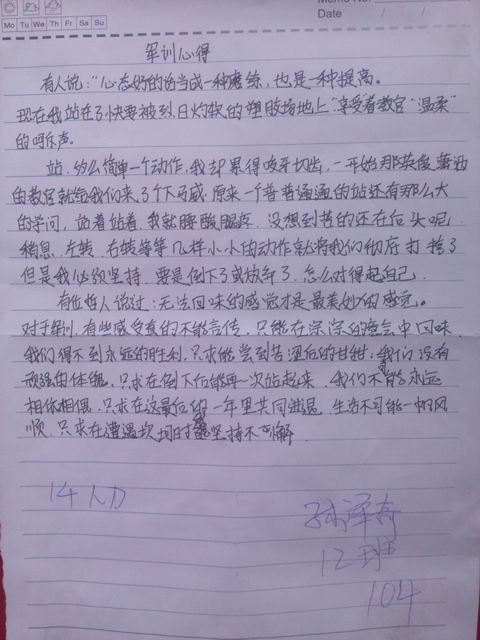 Memo No.
Mo Tu We Th Fr Sa Su
Date / /
军训心得
有人说：“心态好的话当成一种磨练，也是一种提高。
现在我站在了快要被烈日灼软的塑胶场地上“享受着教官“温柔”
的吼乐声。
站，多么简单一个动作，我却累得咬牙切齿，一开始那英俊潇洒
的教官就给我们来了个下马威，原来一个普普通通的站还有那么大
的学问，站着站着，我就腰酸腿疼，没想到苦的还在后头呢
稍息，左转，右转等等几样小小的动作就将我们彻底打拾了
但是我必须坚持，要是倒下了或放弃了，怎么对得起自己，
有位哲人说过：无法回味的感觉才是最美妙的感觉。
对于军训，有些感受真的不能言传，只能在深深的体会中回味，
我们得不到永远的胜利，只求能尝到苦涩后的甘甜；我们没有
顽强的体魄，只求在倒下后能再一次站起来，我们不能永远
相依相偶，只求在这最后的一年里共同进退，生活不可能一帆风
顺，只求在遭遇坎坷时能坚持不懈
14人力
孙泽奇
12班
104